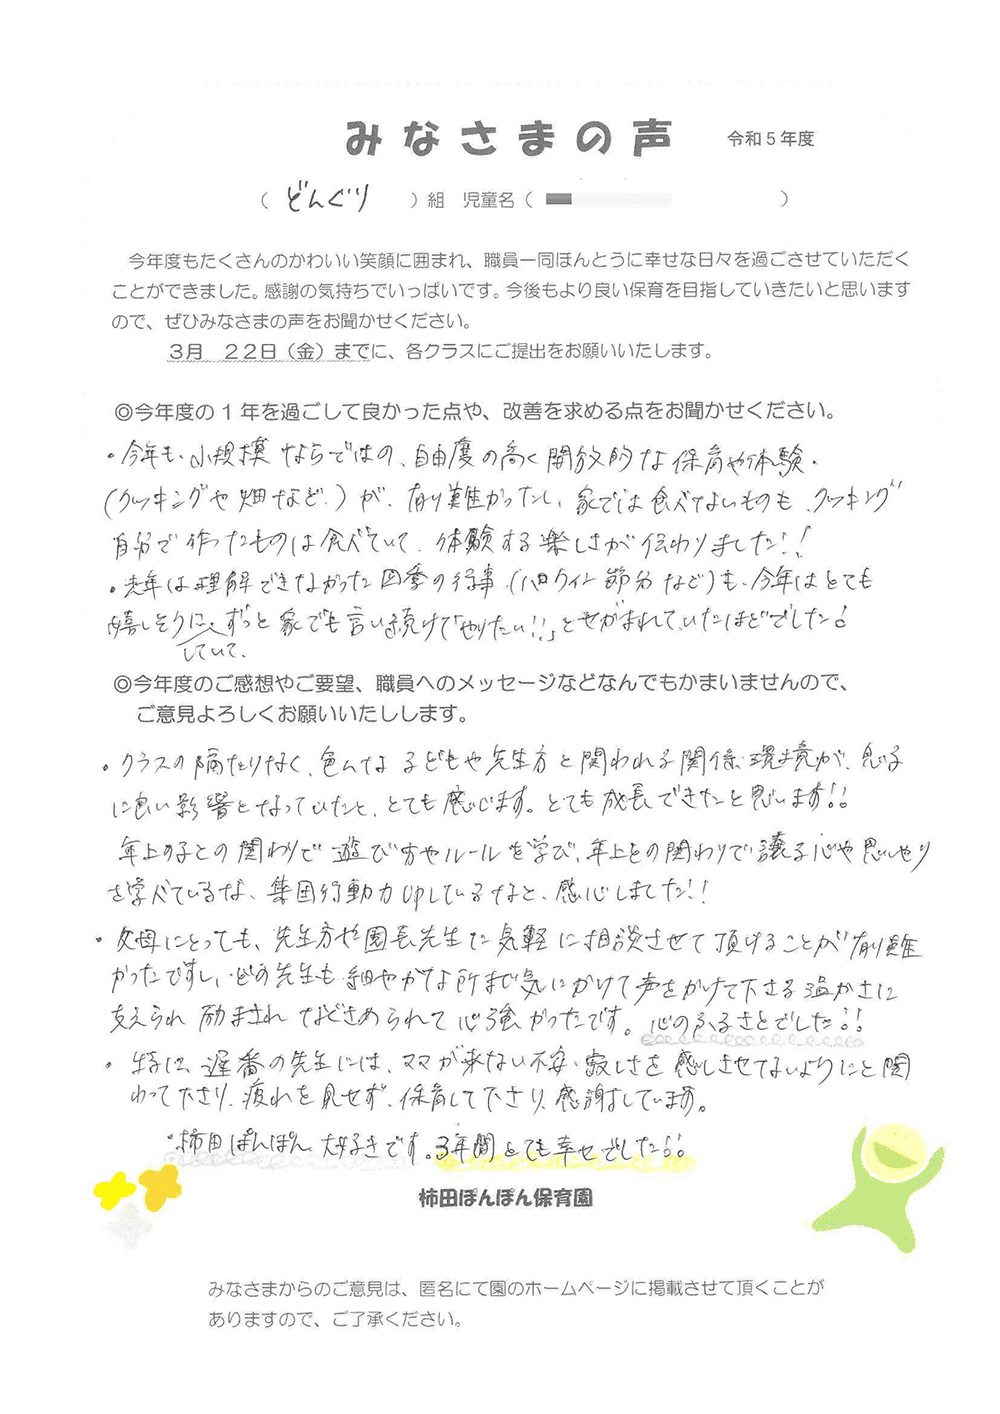 みなさまの声 令和5年度
（ どんぐり ）組 児童名（ ）
今年度もたくさんのかわいい笑顔に囲まれ、職員一同ほんとうに幸せな日々を過ごさせていただく
ことができました。感謝の気持ちでいっぱいです。今後もより良い保育を目指していきたいと思います
ので、ぜひみなさまの声をお聞かせください。
3月 22日（金）までに、各クラスにご提出をお願いいたします。
◎今年度の1年を過ごして良かった点や、改善を求める点をお聞かせください。
・今年も、小規模ならではの、自由度の高く開放的な保育や体験。
(クッキングや畑など。)が、有り難かったし、家では食べないものも、クッキング
自分で作ったものは食べていて、体験する楽しさが伝わりました!!
・去年は理解できなかった四季の行事(ハロウィン節分など)も、今年はとても
嬉しそうにしていて、ずっと家でも言い続けて「やりたい!!」とせがまれていたほどでした!
◎今年度のご感想やご要望、職員へのメッセージなどなんでもかまいませんので、
ご意見よろしくお願いいたしします。
・クラスの隔たりなく、色んな子どもや先生方と関われる関係、環境が、息子
に良い影響となっていたと、とても感じます。とても成長できたと思います!!
年上の子との関わりで遊び方やルールを学び、年上との関わりで譲る心や思いやり
を学べているな、集団行動力upしているなと、感心しました!!
・父母にとっても、先生方や園長先生に気軽に相談させて頂けることが有り難
かったですし、どの先生も細やかな所まで気にかけて声をかけて下さる温かさに
支えられ励まされなぐさめられて心強かったです。心のふるさとでした!!
・特に、遅番の先生には、ママが来ない不安・寂しさを感じさせてないようにと関
わって下さり、疲れを見せず、保育して下さり、感謝しています。
・柿田ぽんぽん大好きです。3年間とても幸せでした!!
柿田ぽんぽん保育園
みなさまからのご意見は、匿名にて園のホームページに掲載させて頂くことが
ありますので、ご了承ください。